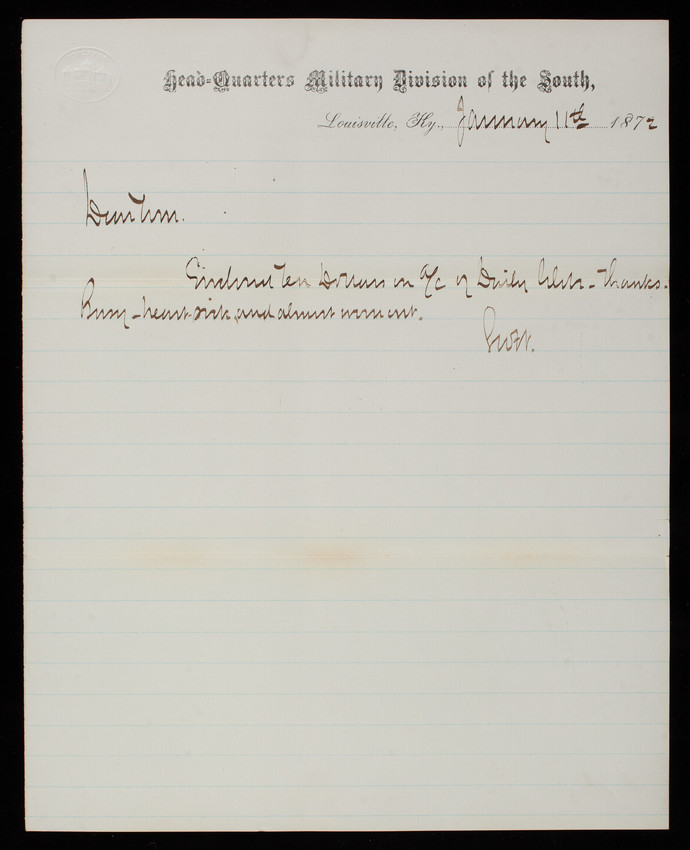 Head-Quarters Military Division of the South,
Louisville, Ky., January 11th 1872
Dear Tom.
Enclosed ten Dollars on a/c of Daily Globe - Thanks.
Busy - heart-sick, and almost worn out.